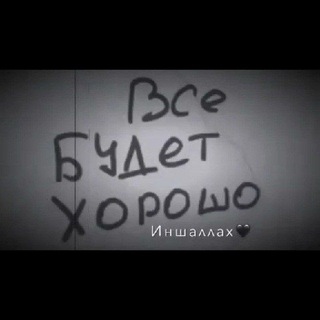 Все
Будет
хорошо
Иншаллах🖤